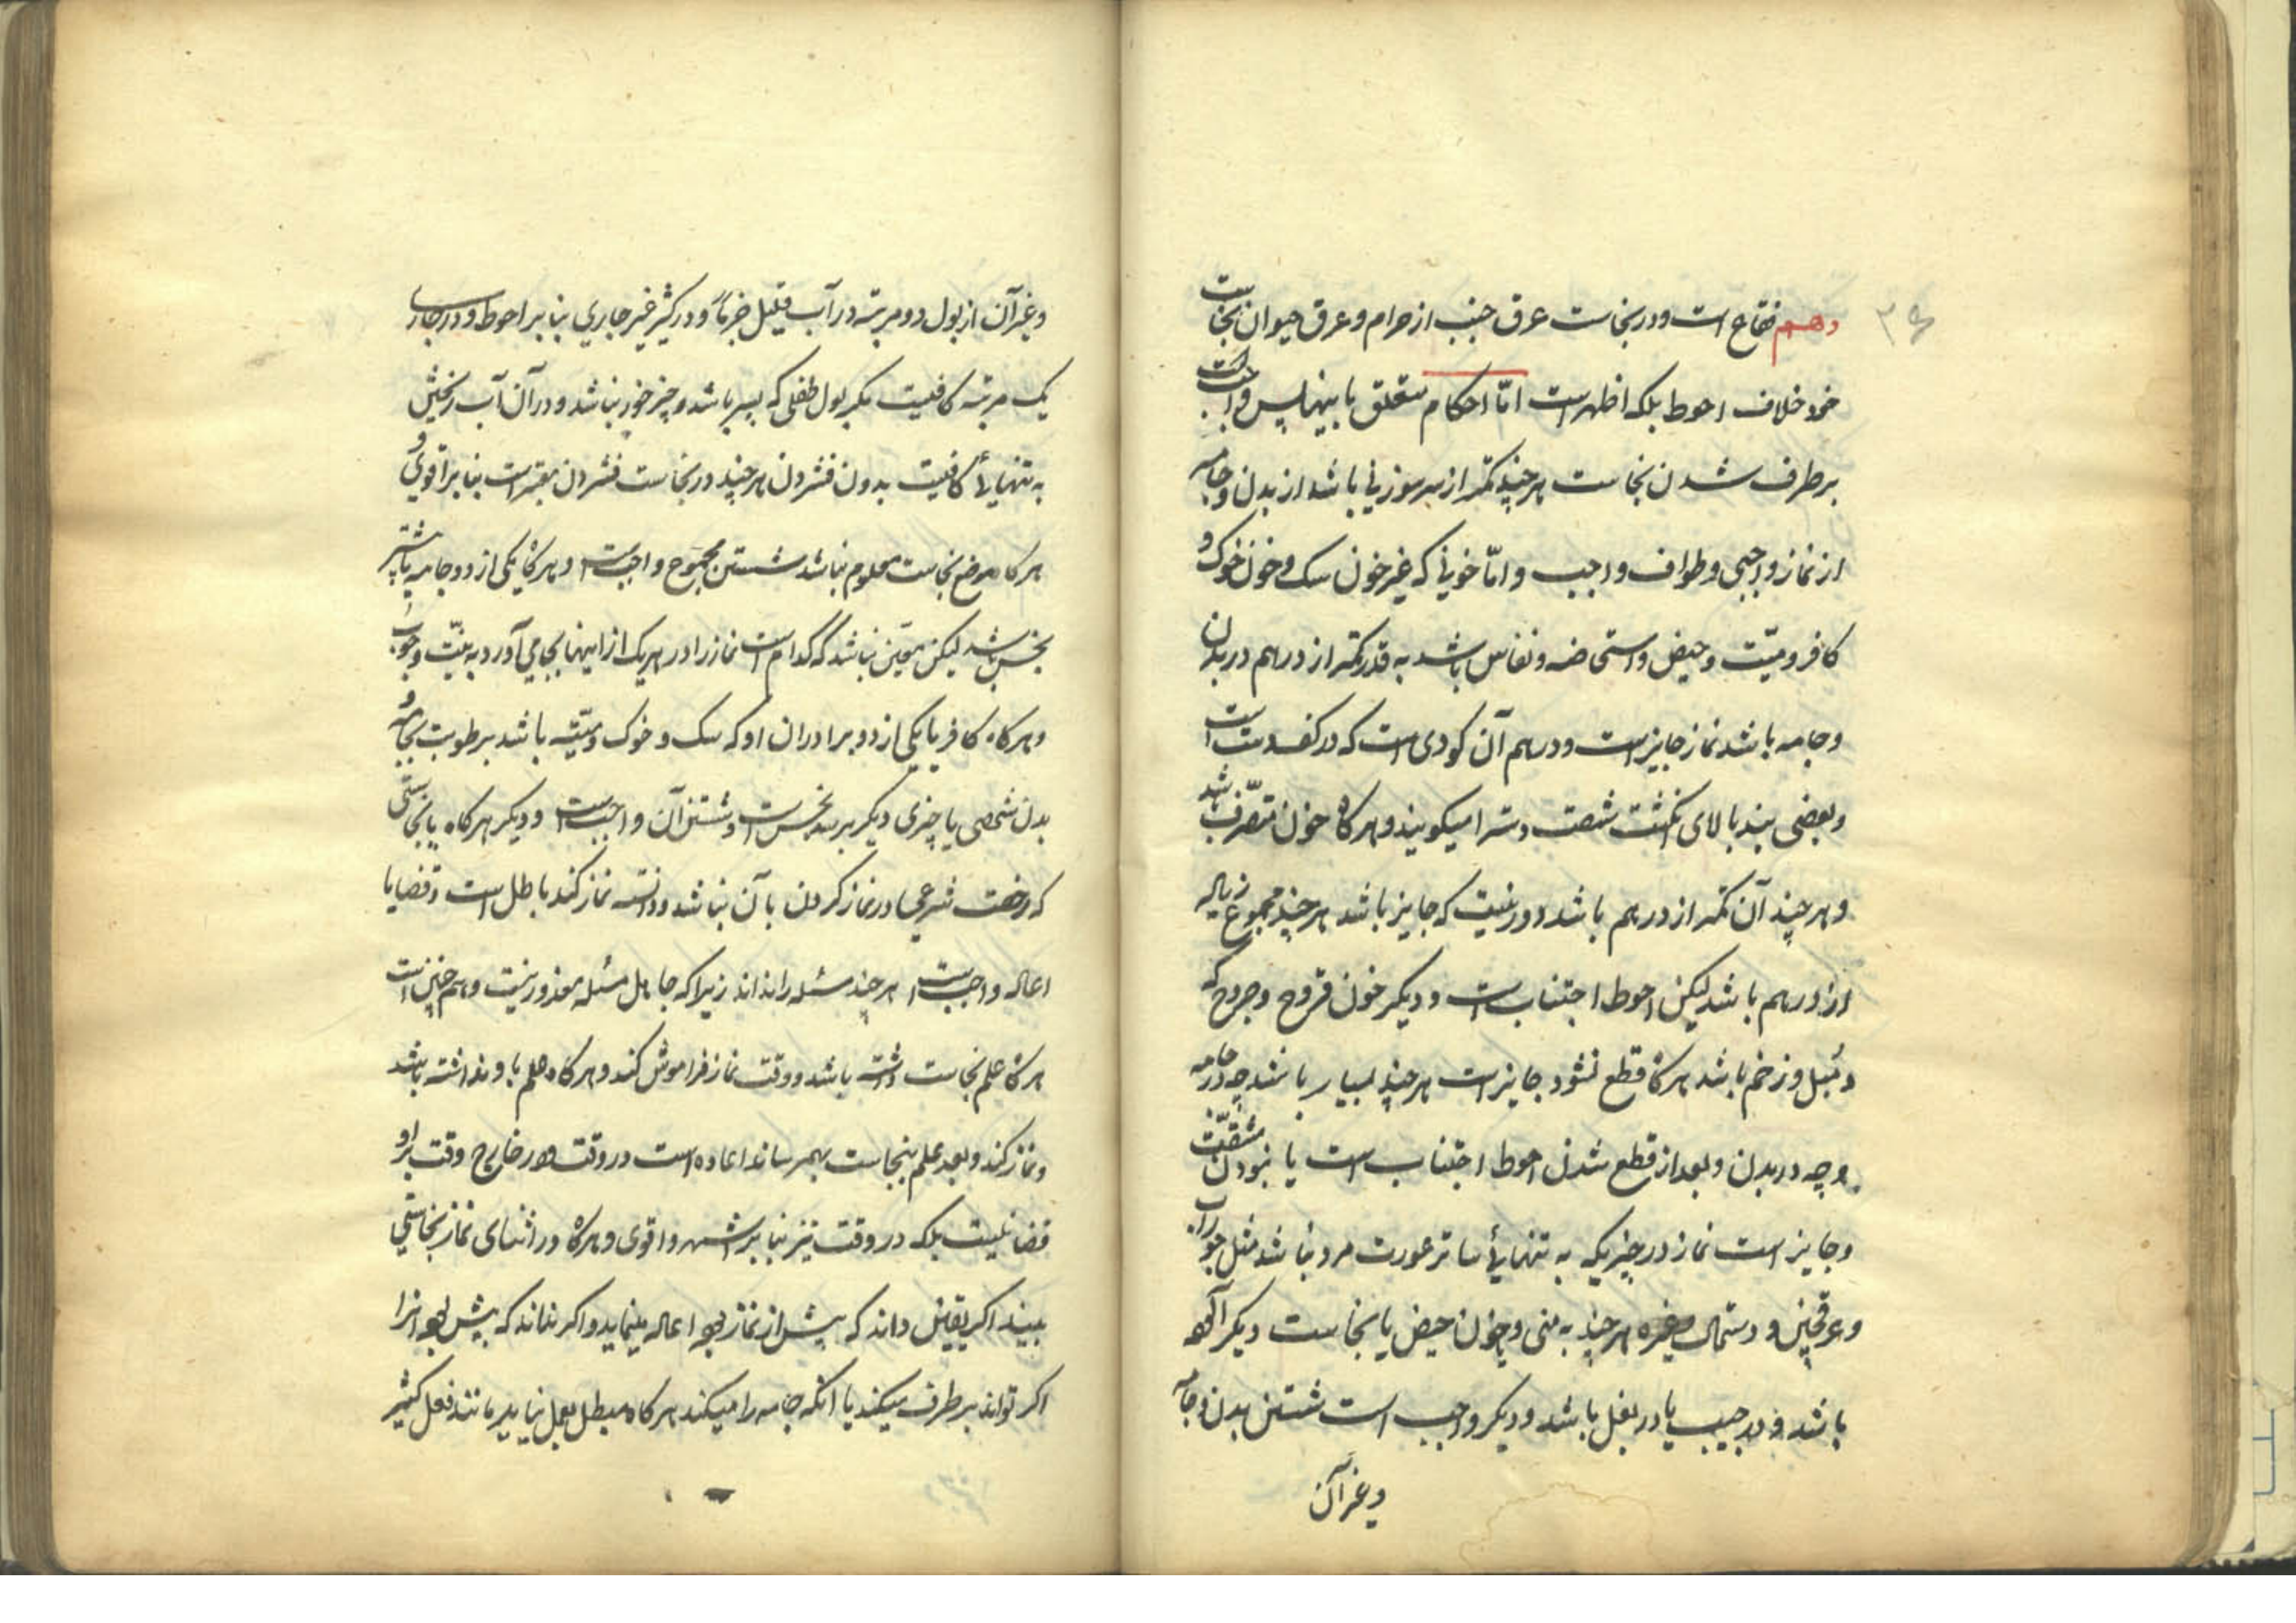 دهم فقاع است و در نجاست عرق جنب از حرام و عرق حیوان نجاست
خور خلاف احوط بلکه اظهر است امّا احکام متعلق باینها پس واجب است
برطرف شدن نجاست هر چند کمتر از سر سوزنی باشد از بدن و جامه
از نماز واجبی و طواف واجب و امّا خونی که غیر خون سک و خون خوک و
کافر و میّت و حیض و استحاضه و نفاس باشد به قدر کمتر از درهم در بدن
و جامه باشد نماز جایز است و درهم آن کودی است که در کف دست است
و بعضی بند بالای انکشت شصت دست را میکویند و هر کاه خون متفرّق باشد
و هر چند آن کمتر از درهم باشد دور نیست که جایز باشد هر چند مجموع زیاده
از درهم باشد لیکن احوط اجتناب است و دیکر خون قروح و جروح که
دمبل و زخم باشد هر کاه قطع نشود جایز است هر چند بسیار باشد چه در جامه
و چه در بدن و بعد از قطع شدن احوط اجتناب است یا نبودن مشقّت
و جایز است نماز در چیزیکه به تنهائی ساتر عورت مرد نباشد مثل جوراب
و عرقچین و دستمال و غیره هر چند به منی و خون حیض یا نجاست دیکر آلوده
باشد و در جیب یا در بغل باشد و دیکر واجب است شستن بدن و جامه
و غیر آن
و غیر آن از بول دو مرتبه در آب قلیل جزماً و در کثیر غیر جاری بنا بر احوط و در جاری
یک مرتبه کافیست مکر بول طفلی که پسر باشد و چیز خور نباشد و در آن آب ریختن
به تنهائی کافیست بدون فشردن هر چند در نجاست فشردن معتبر است بنا بر اقوی و
هر کاه موضع نجاست معلوم نباشد شستن مجموع واجب است و هر کاه یکی از دو جامه یا بیشتر
نجس باشد لیکن معیّن نباشد که کدام است نماز را در هر یک از اینها بجا می آورد به نیّت وجوب
و هر کاه کافر یا یکی از دو برادران او که سک و خوک و میّته باشد برطوبت بجامه و
بدن شخصی یا چیزی دیکر برسد نجس است و شستن آن واجب است و دیکر هر کاه با نجاستی
که رخصت شرعی در نماز کردن با آن نباشد دانسته نماز کند باطل است و قضا یا
اعاده واجب است هر چند مسئله را نداند زیرا که جاهل مسئله معذور نیست و هم چنین است
هر کاه علم نجاست داشته باشد و وقت نماز فراموش کند و هر کاه علم باو نداشته باشد
و نماز کند و بعد علم بنجاست بهمرساند اعاده است در وقت و در خارج وقت بر او
قضا نیست بلکه در وقت نیز بنا بر اشهر و اقوی و هر کاه در اثنای نماز نجاستی
ببیند اکر یقین داند که پیش از نماز بود اعاده مینماید و اکر نداند که پیش بود انرا
اکر تواند برطرف میکند یا انکه جامه را میکند هر کاه مبطل بعمل نیاید مانند فعل کثیر